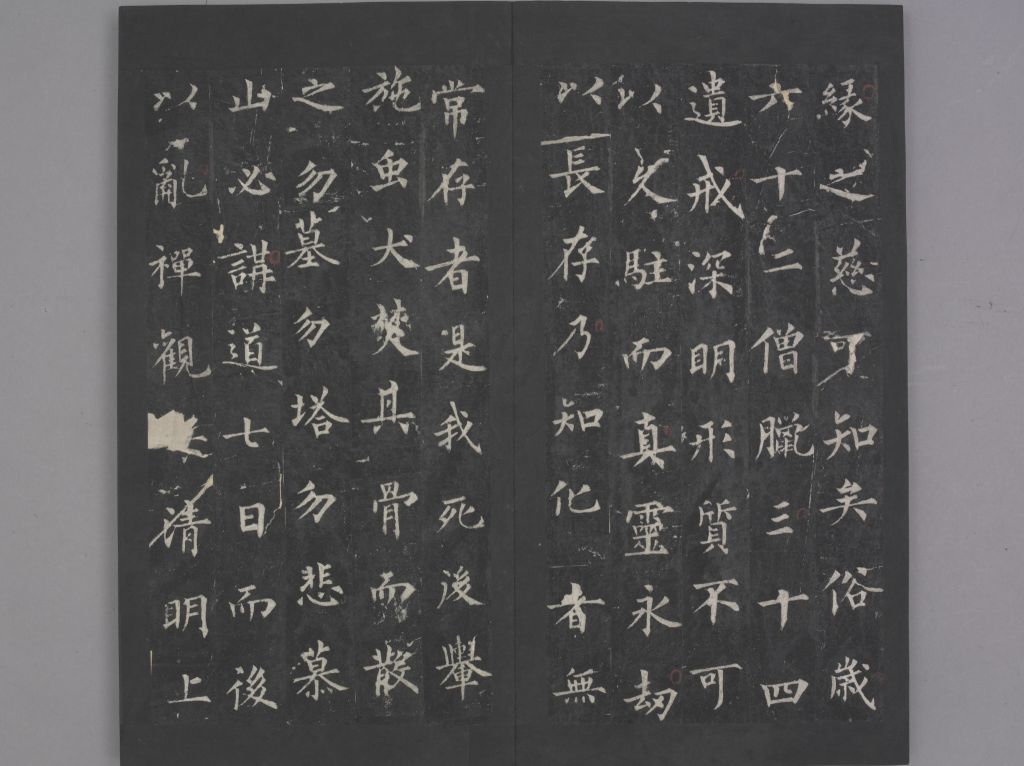 縁之慈可知矣俗歲
六十二僧臘三十四
遺戒深明形質不可
以久駐而真靈永劫
以長存乃知化者無
常存者是我死後轝
施虫犬焚其骨而散
之勿墓勿塔勿悲慕
山必講道七日而後
以亂禪觀清明上